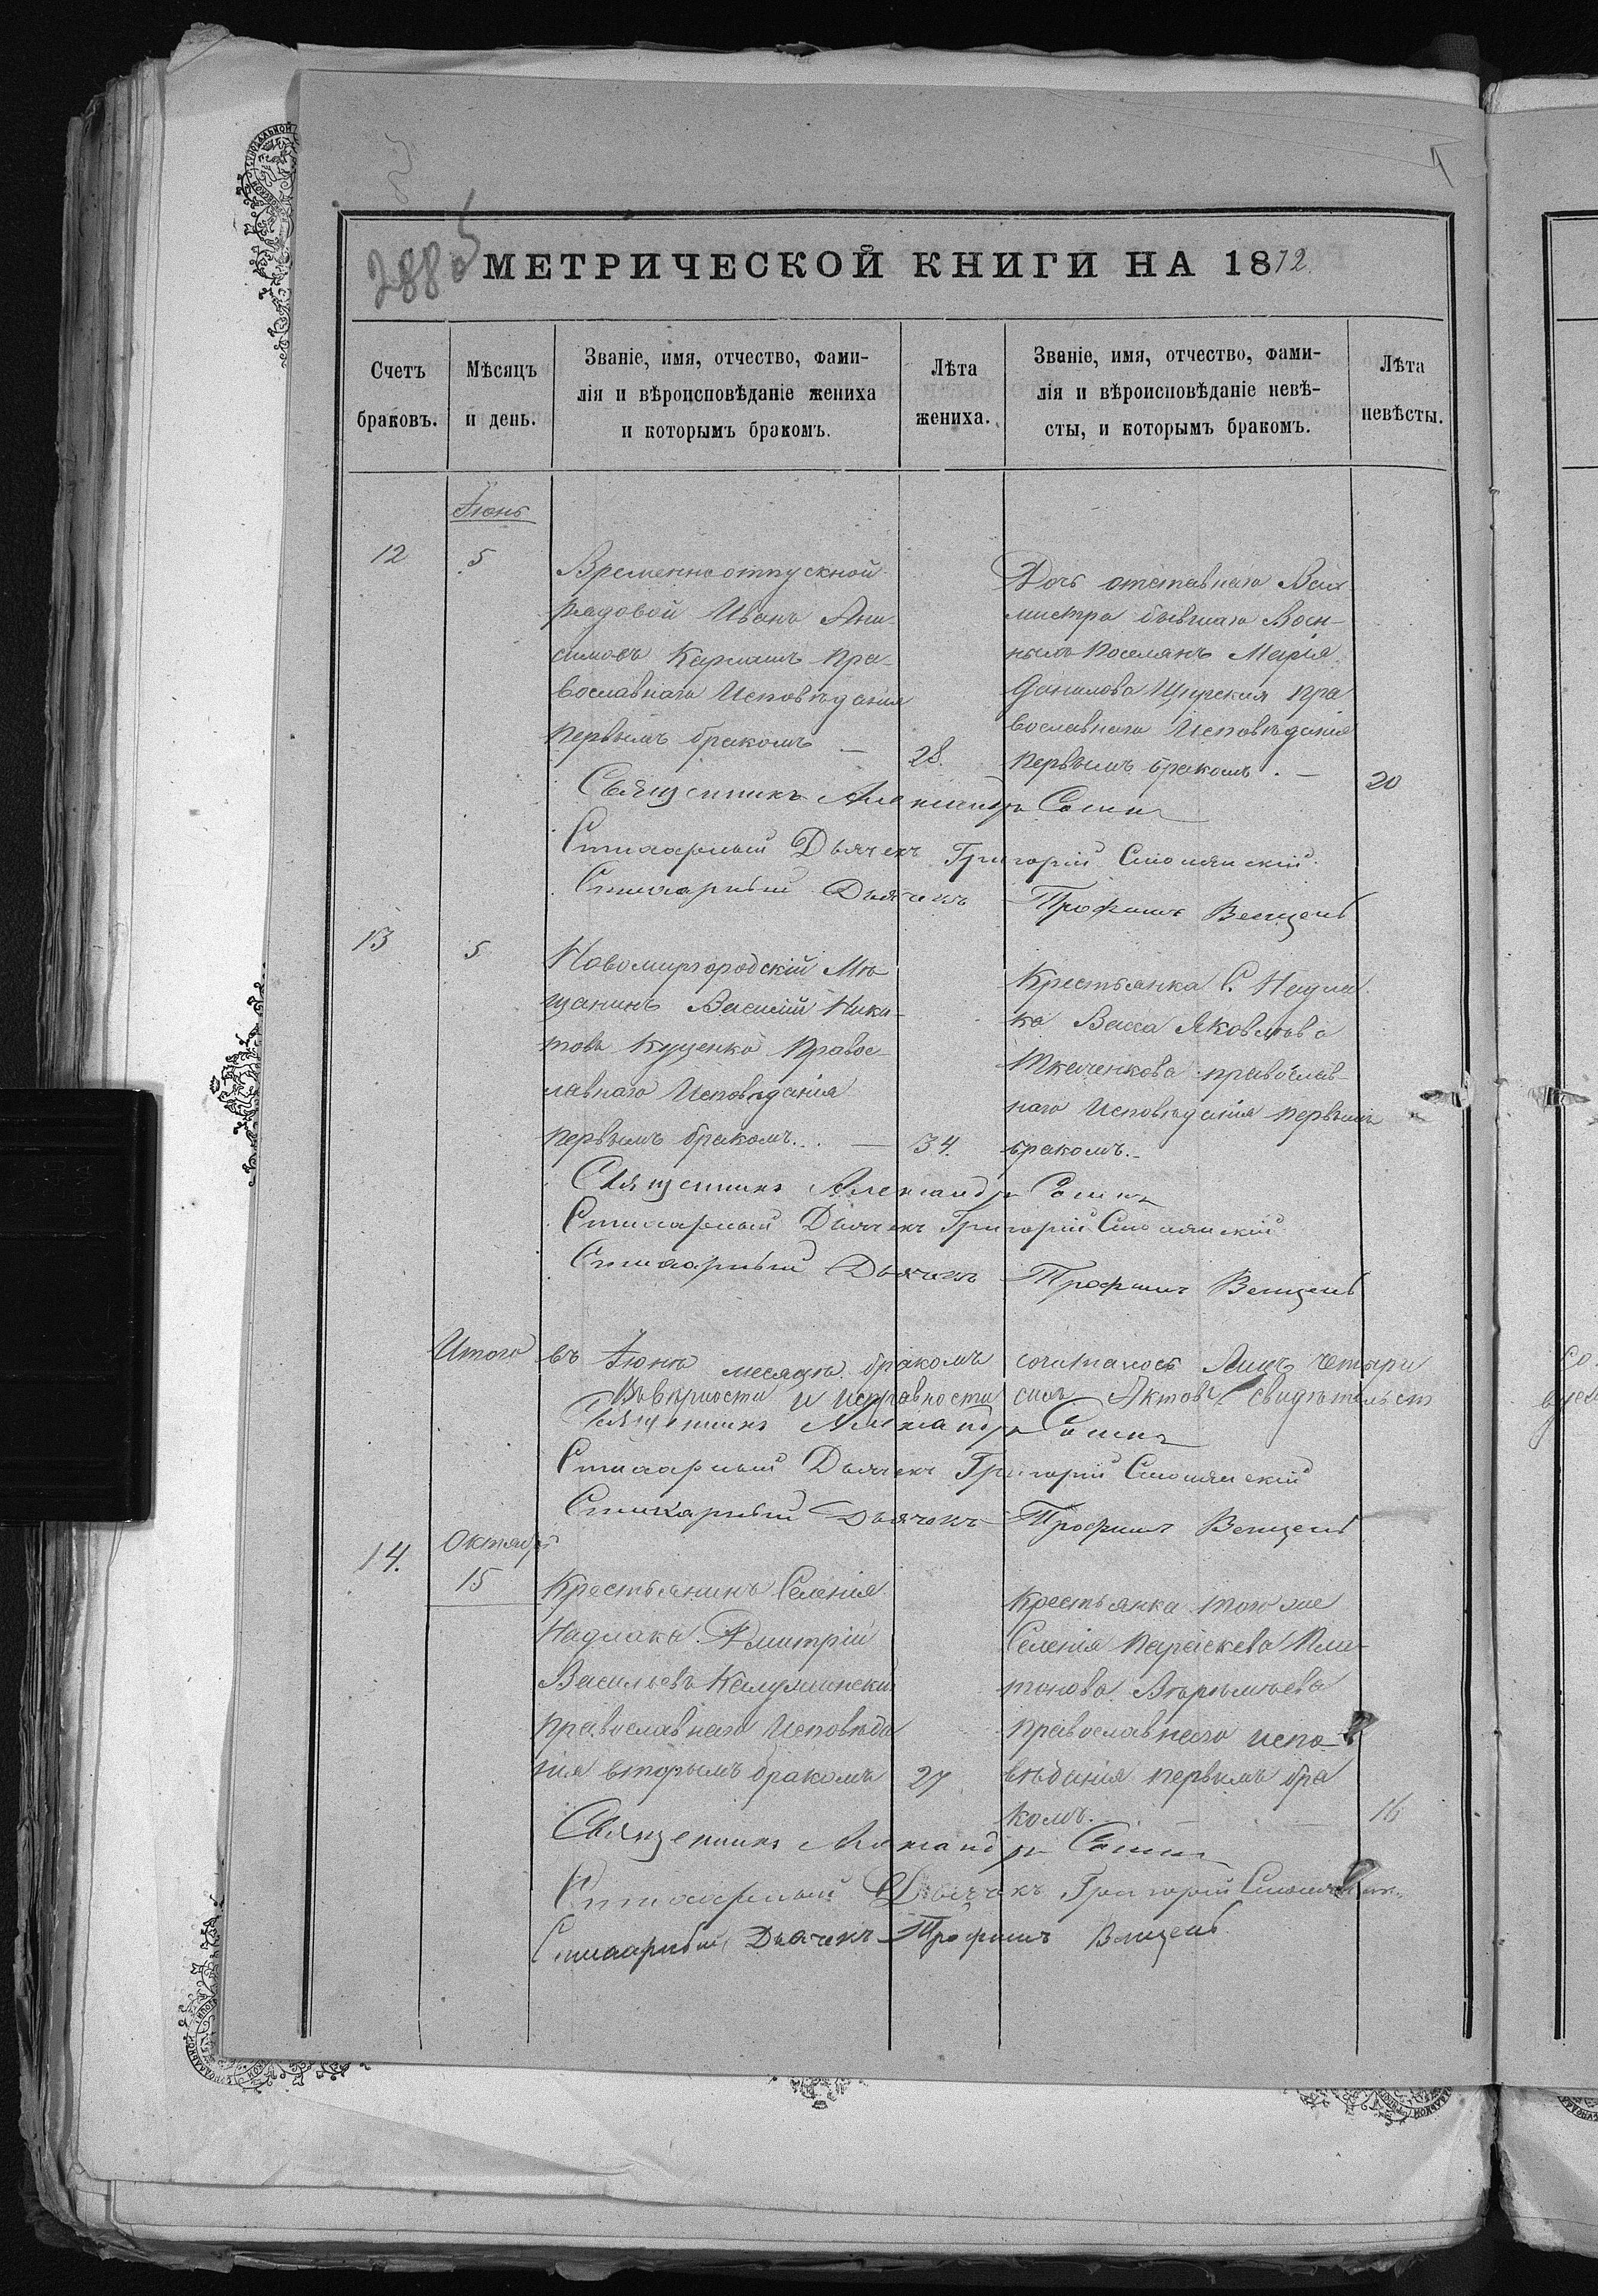 288
МЕТРИЧЕСКОЙ КНИГИ НА 1872.
Счетъ браковъ.
Мѣсяцъ и день.
Званіе, имя, отчество, фами-
лія и вѣроисповѣданіе жениха
и которымъ бракомъ.
Лѣта жениха.
Званіе, имя, отчество, фами-
лія и вѣроисповѣданіе невѣ-
сты, и которымъ бракомъ.
Лѣта невѣсты.
Іюнь
12
5
Временноотпускной
рядовой Иванъ Ани-
симовъ Карпашъ пра-
вославнаго Исповѣданія
первымъ бракомъ —
28.
Дочь отставнаго Вах-
мистра бывшаго Воен-
ныхъ Поселянъ Марія
Данилова пра
вославнаго Исповѣданія
первымъ бракомъ. —
20
Священникъ Александръ
Стихарный Дьячекъ Григорій
Стихарный Дьячекъ Трофимъ Венцель
13
5
Новомиргородскій Мѣ-
щанинъ Василій Ники-
товъ Куценко Правос-
лавнаго Исповѣданія
первымъ бракомъ. —
34.
Крестьянка С. Надла-
ка Васса Яковлева
Ткаченкова православ-
наго Исповѣданія первымъ
бракомъ. –
Священникъ Александръ
Стихарный Дьячекъ Григорій
Стихарный Дьячекъ Трофимъ Венцель
Итого въ Іюнѣ месяцѣ бракомъ сочиталось Лицъ четыри
Въ вѣрности и исправности сихъ Актовъ свидѣтельст
Священникъ Александръ
Стихарный Дьячекъ Григорій
Стихарный Дьячекъ Трофимъ Венцель
14.
Октябрь
15
Крестьянинъ Селенія
Надлака Дмитрій
Васильевъ
православнаго Исповѣда
нія вторымъ бракомъ
27
Крестьянка того же
Селенія Параскева Пла-
тонова
православнаго испо-
вѣданія первымъ бра
комъ.
16
Священникъ Александръ
Стихарный Дьячекъ Григорій
Стихарный Дьячекъ Трофимъ Венцель